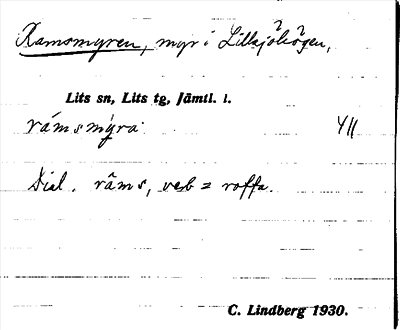 Ramsmyren, myr i Lillsjöhögen,
Lits sn, Lits tg, Jämtl. l.
råmsmỳra 411
Dial. râms, verb = roffa.
C. Lindberg 1930.